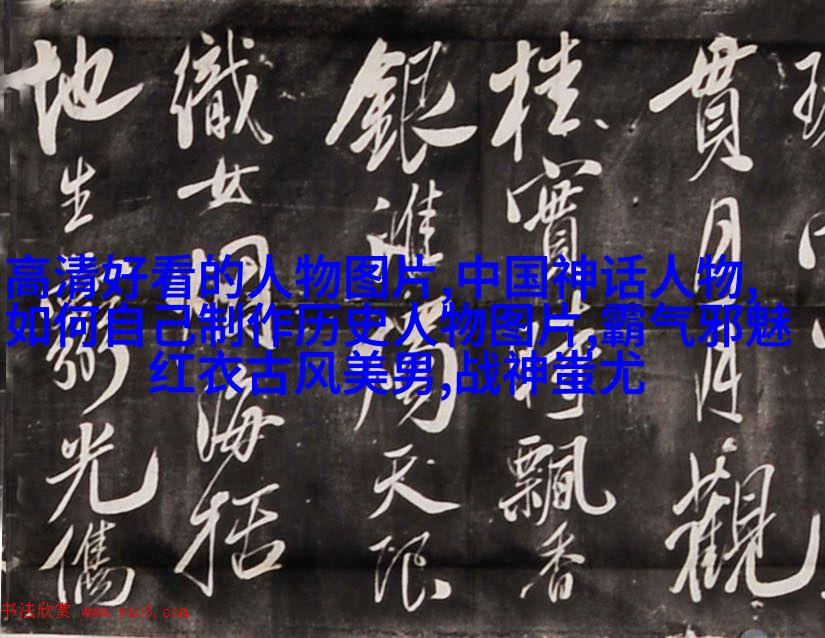 貫月月觀
桂實飄香
銀天限
織女海括
地生光儁
高清好看的人物图片,中国神话人物,
如何自己制作历史人物图片,霸气邪魅
红衣古风美男,战神蚩尤
书法欣赏 www.yac8.com